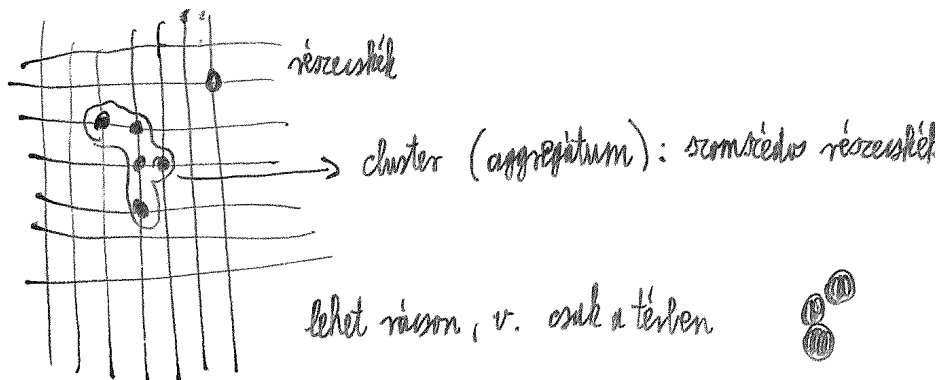 részecskék
cluster (aggregátum): szomszédos részecskék
lehet rácson, v. csak a térben